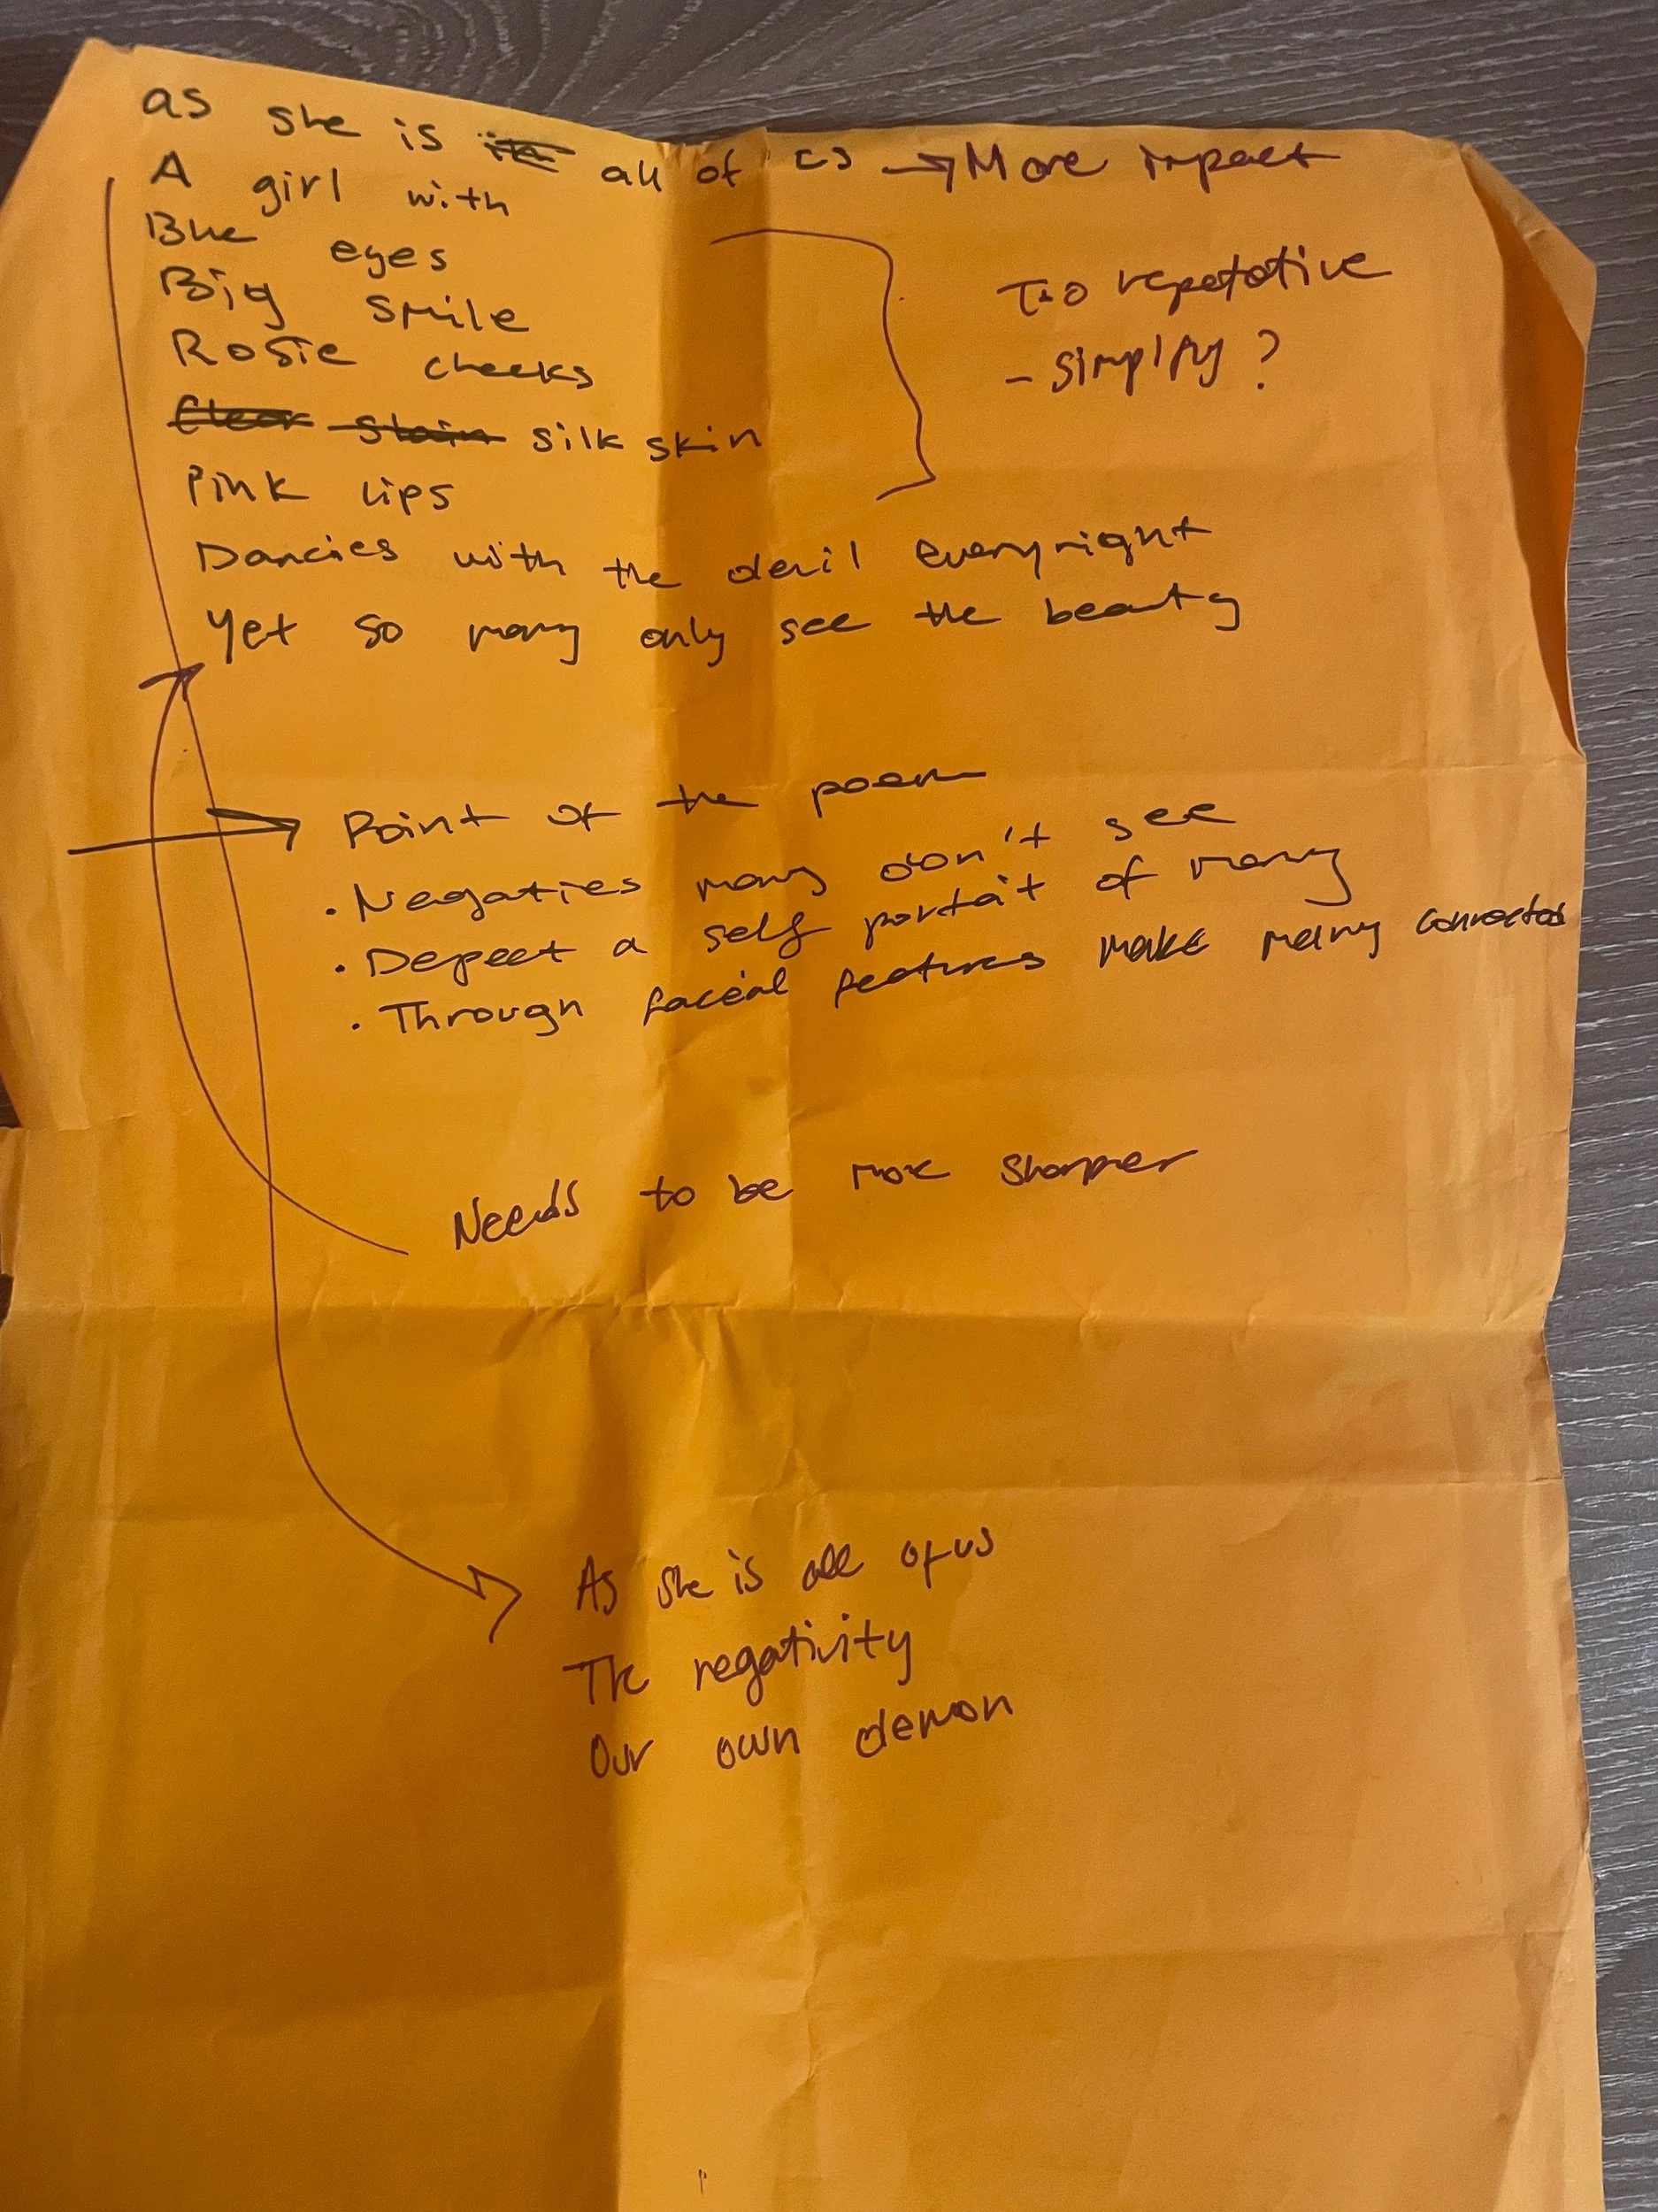 as she is all of us → More impact
A girl with
Blue eyes
Big smile
Rosie cheeks
Clear silk skin
Pink lips
Dancies with the devil everynight
Yet so many only see the beauty
Too repetative
- simplify?
Point of the poem
· Negaties many don't see
· Depect a self portait of many
· Through facial features make many connected
Needs to be more sharper
As she is all of us
The negativity
Our own demon